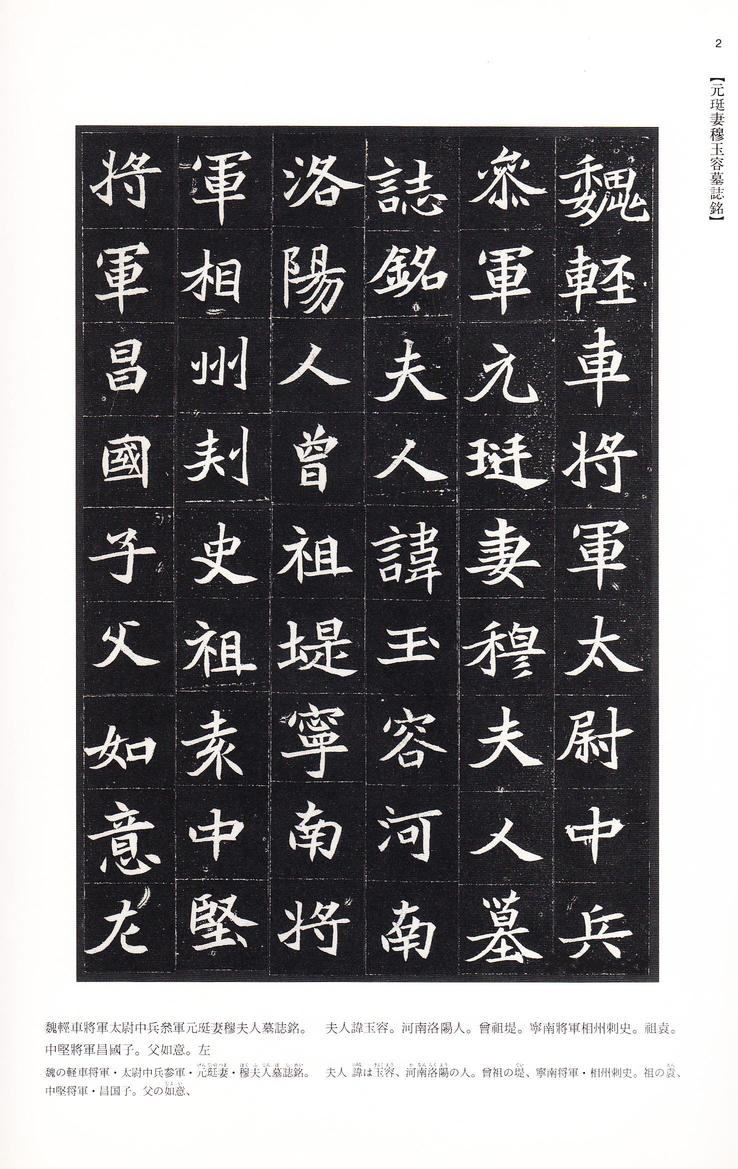 2
【元珽妻穆玉容墓誌銘】
魏輕車將軍太尉中兵
叅軍元珽妻穆夫人墓
誌銘夫人諱玉容河南
洛陽人曾祖堤寧南將
軍相州刾史祖袁中堅
將軍昌國子父如意左
魏輕車將軍太尉中兵叅軍元珽妻穆夫人墓誌銘。　夫人諱玉容。河南洛陽人。曾祖堤。寧南將軍相州刺史。祖袁。
中堅將軍昌國子。父如意。左
魏の軽車将軍・太尉中兵参軍・元珽妻・穆夫人墓誌銘。　夫人 諱は玉容、河南洛陽の人。曾祖の堤、寧南将軍・相州刺史。祖の袁、
中堅将軍・昌国子。父の如意、